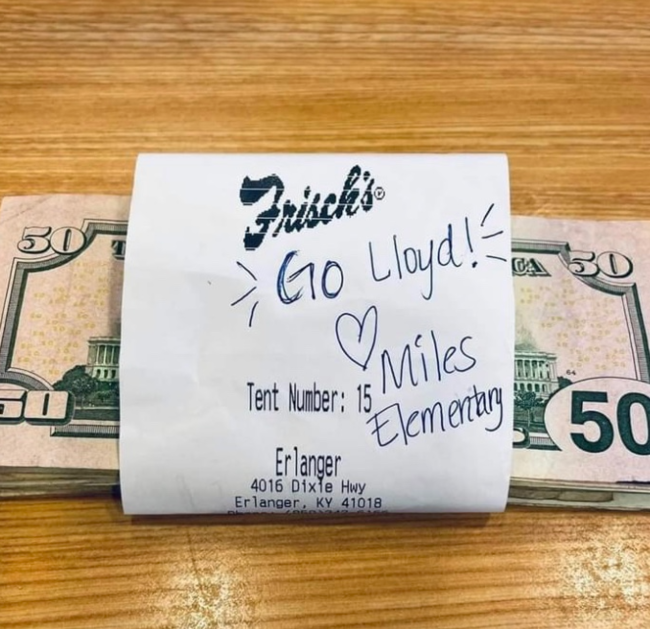 Frisch's®
Go Lloyd!
♡ Miles
Elementary
Tent Number: 15
Erlanger
4016 Dixie Hwy
Erlanger, KY 41018
50
50
50
50